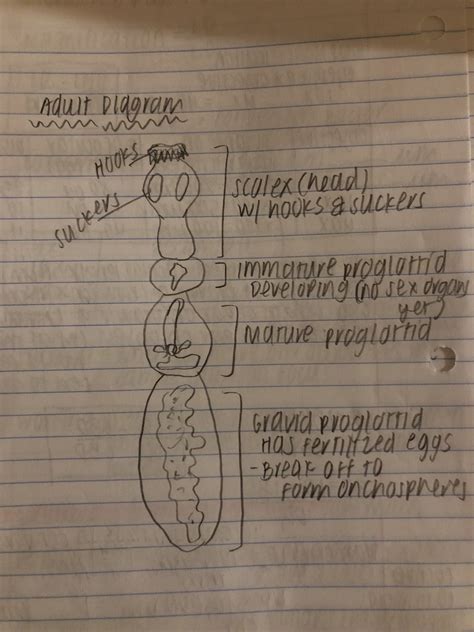 Adult Diagram
HOOKS
SUCKERS
scolex (head)
w/ hooks & suckers
immature proglottid
Developing (no sex organs
yet)
Mature proglottid
Gravid proglottid
Has fertilized eggs
- Break off to
form onchospheres